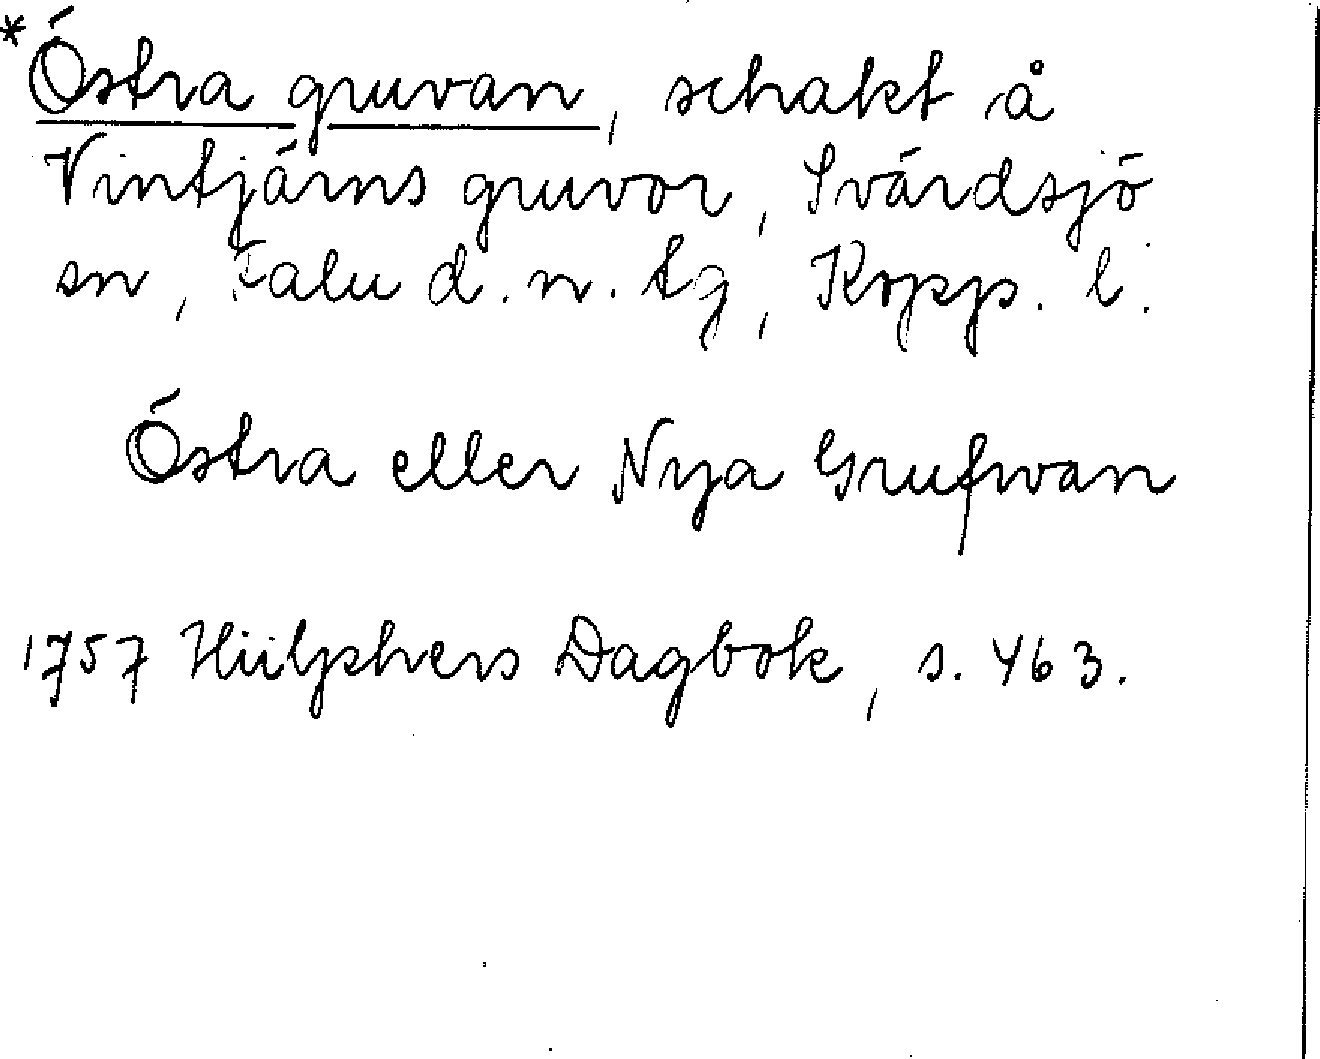 *Östra gruvan, schakt å
Vintjärns gruvor, Svärdsjö
sn, Falu d. n. tg, Kopp. l.
Östra eller Nya Grufwan
1757 Hülphers Dagbok, s. 463.